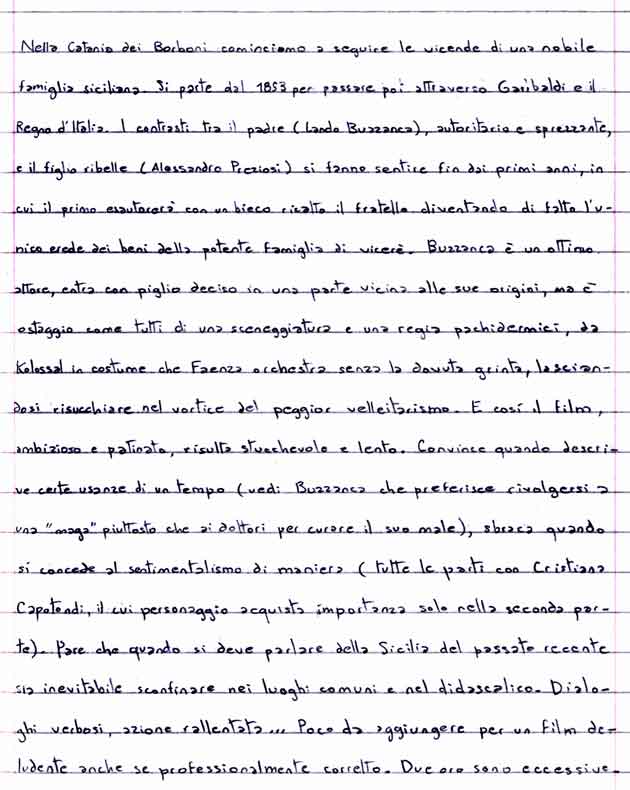 Nella Catania dei Borboni cominciamo a seguire le vicende di una nobile
famiglia siciliana. Si parte dal 1853 per passare poi attraverso Garibaldi e il
Regno d'Italia. I contrasti tra il padre (Lando Buzzanca), autoritario e sprezzante,
e il figlio ribelle (Alessandro Preziosi) si fanno sentire fin dai primi anni, in
cui il primo esautorerà con un bieco ricatto il fratello diventando di fatto l'u-
nico erede dei beni della potente famiglia di viceré. Buzzanca è un ottimo
attore, entra con piglio deciso in una parte vicina alle sue origini, ma è
ostaggio come tutti di una sceneggiatura e una regia pachidermici, da
Kolossal in costume che Faenza orchestra senza la dovuta grinta, lascian-
dosi risucchiare nel vortice del peggior velleitarismo. E così il film,
ambizioso e patinato, risulta stucchevole e lento. Convince quando descri-
ve certe usanze di un tempo (vedi Buzzanca che preferisce rivolgersi a
una "maga" piuttosto che ai dottori per curare il suo male), sbraca quando
si concede al sentimentalismo di maniera (tutte le parti con Cristiana
Capotondi, il cui personaggio acquista importanza solo nella seconda par-
te). Pare che quando si deve parlare della Sicilia del passato recente
sia inevitabile sconfinare nei luoghi comuni e nel didascalico. Dialo-
ghi verbosi, azione rallentata... Poco da aggiungere per un film de-
ludente anche se professionalmente corretto. Due ore sono eccessive.